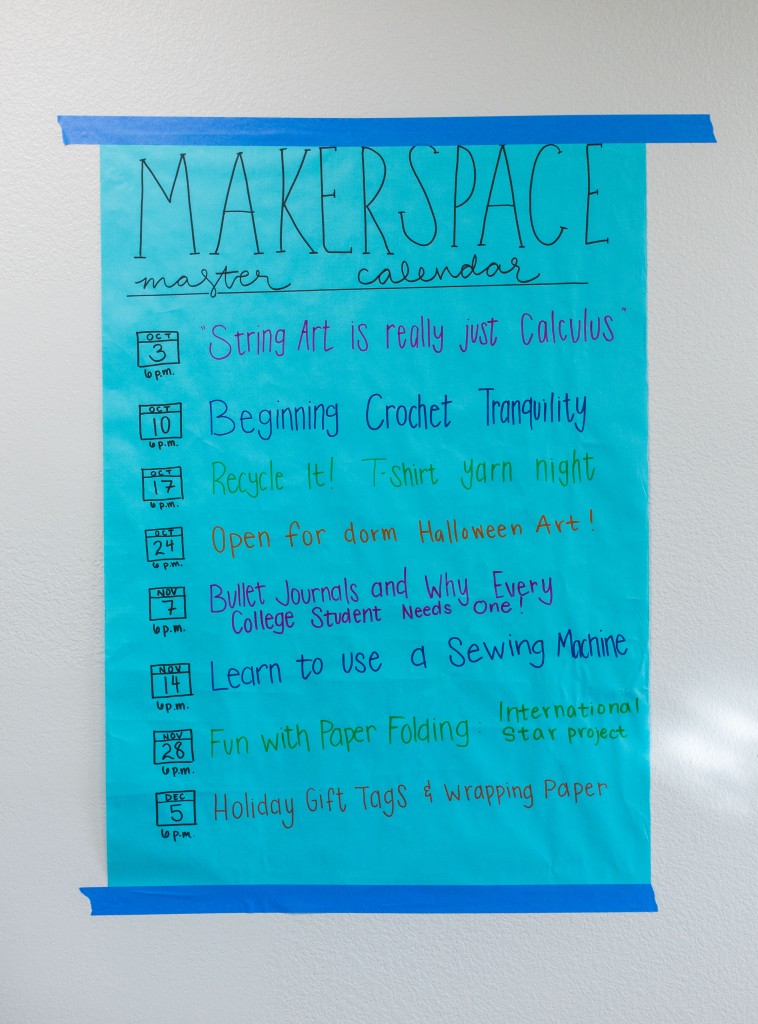 MAKERSPACE
master calendar
OCT
3
6 p.m.
"String Art is really just Calculus"
OCT
10
6 p.m.
Beginning Crochet Tranquility
OCT
17
6 p.m.
Recycle It! T-shirt yarn night
OCT
24
6 p.m.
Open for dorm Halloween Art!
NOV
7
6 p.m.
Bullet Journals and Why Every
College Student Needs One!
NOV
14
6 p.m.
Learn to use a Sewing Machine
NOV
28
6 p.m.
Fun with Paper Folding: International
Star project
DEC
5
6 p.m.
Holiday Gift Tags & Wrapping Paper